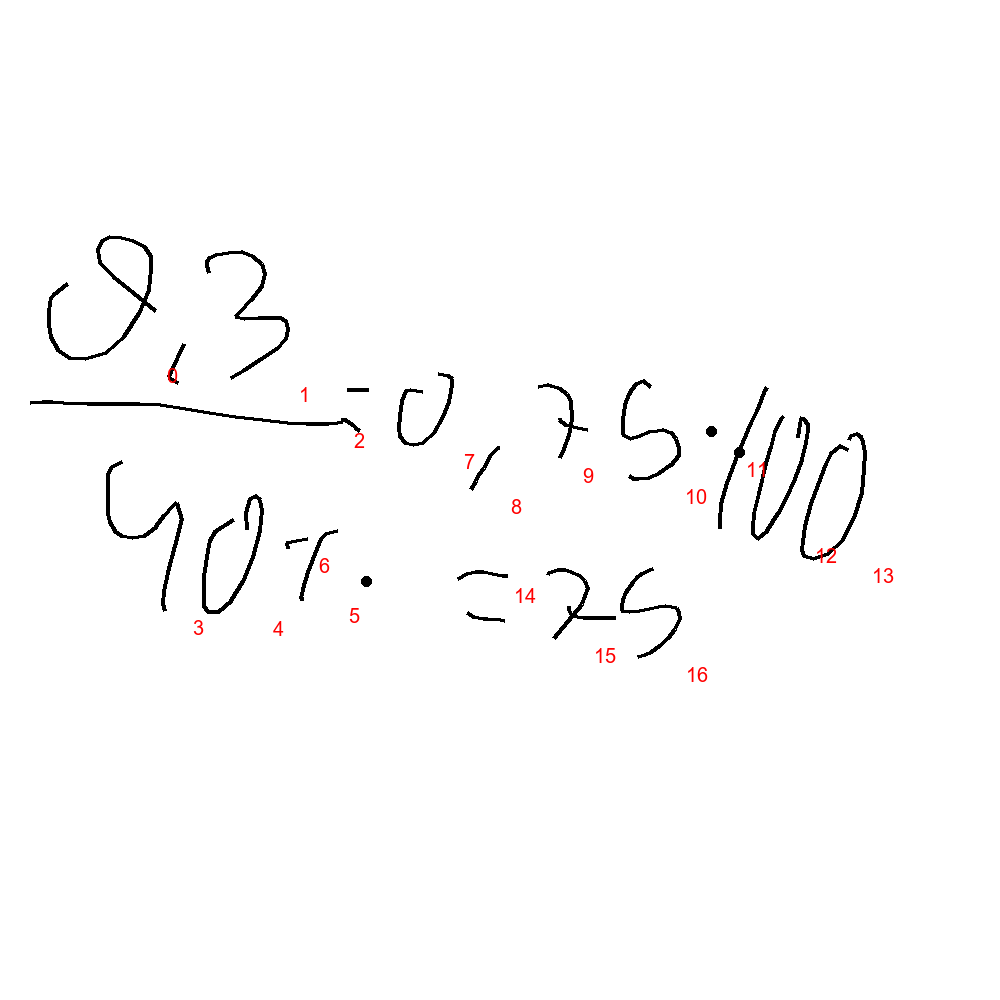 0,3
- 0,75 · 100
40т.
= 75
0
1
2
3
4
5
6
7
8
9
10
11
12
13
14
15
16